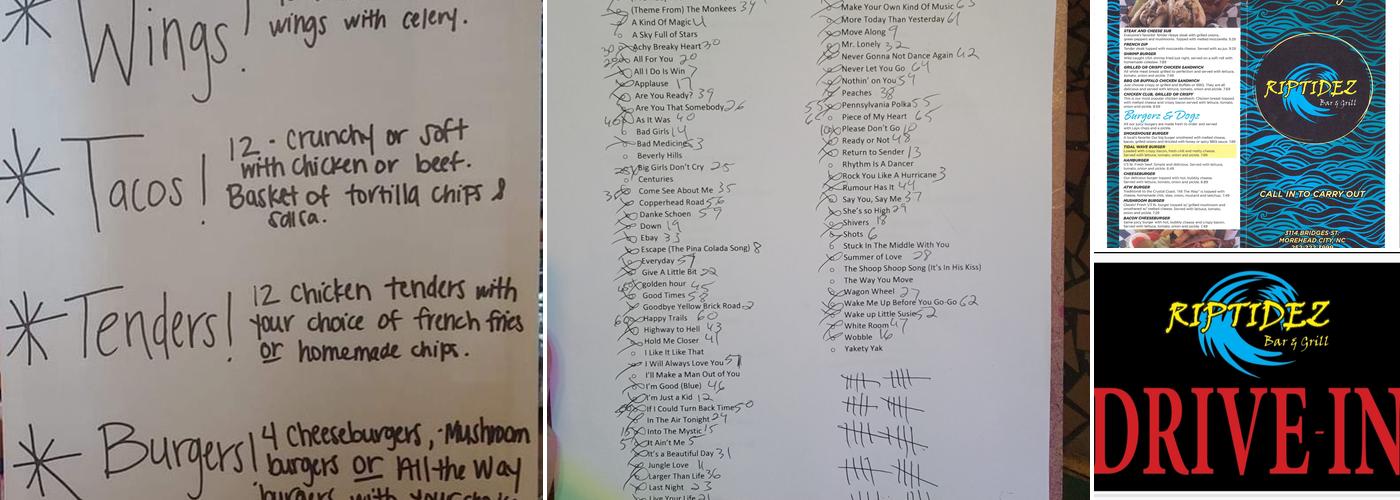 Wings!
wings with celery.
Tacos!
12 - crunchy or soft
with chicken or beef.
Basket of tortilla chips &
salsa.
Tenders!
12 chicken tenders with
your choice of french fries
or homemade chips.
Burgers!
4 Cheeseburgers, Mushroom
burgers or All-the Way
(Theme From) The Monkees 34
A Kind Of Magic 4
A Sky Full of Stars
Achy Breaky Heart 30
All For You 20
All I Do Is Win 7
Applause 17
Are You Ready? 39
Are You That Somebody 26
As It Was 40
Bad Girls 14
Bad Medicine
Beverly Hills
Big Girls Don't Cry 25
Centuries
Come See About Me 35
Copperhead Road 56
Danke Schoen 59
Down 19
Ebay 33
Escape (The Pina Colada Song) 8
Everyday
Give A Little Bit 22
golden hour 45
Good Times 58
Goodbye Yellow Brick Road 2
Happy Trails 60
Highway to Hell 43
Hold Me Closer 41
I Like It Like That
I Will Always Love You 51
I'll Make a Man Out of You
I'm Good (Blue) 46
I'm Just a Kid 12
If I Could Turn Back Time 50
In The Air Tonight 24
Into The Mystic 15
It Ain't Me 5
It's a Beautiful Day 31
Jungle Love 11
Larger Than Life 36
Last Night 23
Live Your Life 21
Make Your Own Kind Of Music 63
More Today Than Yesterday 61
Move Along 9
Mr. Lonely 32
Never Gonna Not Dance Again 42
Never Let You Go 64
Nothin' on You 54
Peaches 38
Pennsylvania Polka 55
Piece of My Heart 65
Please Don't Go 10
Ready or Not 48
Return to Sender 13
Rhythm Is A Dancer
Rock You Like A Hurricane 3
Rumour Has It 44
Say You, Say Me 57
She's so High 29
Shivers 18
Shots 6
Stuck In The Middle With You
Summer of Love 28
The Shoop Shoop Song (It's In His Kiss)
The Way You Move
Wagon Wheel 27
Wake Me Up Before You Go-Go 62
Wake up Little Susie 52
White Room 47
Wobble 16
Yakety Yak
STEAK AND CHEESE SUB
FRENCH DIP
SHRIMP BURGER
GRILLED OR CRISPY CHICKEN SANDWICH
BBQ OR BUFFALO CHICKEN SANDWICH
CHICKEN CLUB, GRILLED OR CRISPY
Burgers & Dogs
SMOKEHOUSE BURGER
TIDAL WAVE BURGER
HAMBURGER
CHEESEBURGER
ATW BURGER
MUSHROOM BURGER
BACON CHEESEBURGER
RIPTIDEZ
Bar & Grill
CALL IN TO CARRY OUT
3114 BRIDGES ST.
MOREHEAD CITY, NC
RIPTIDEZ
Bar & Grill
DRIVE-IN